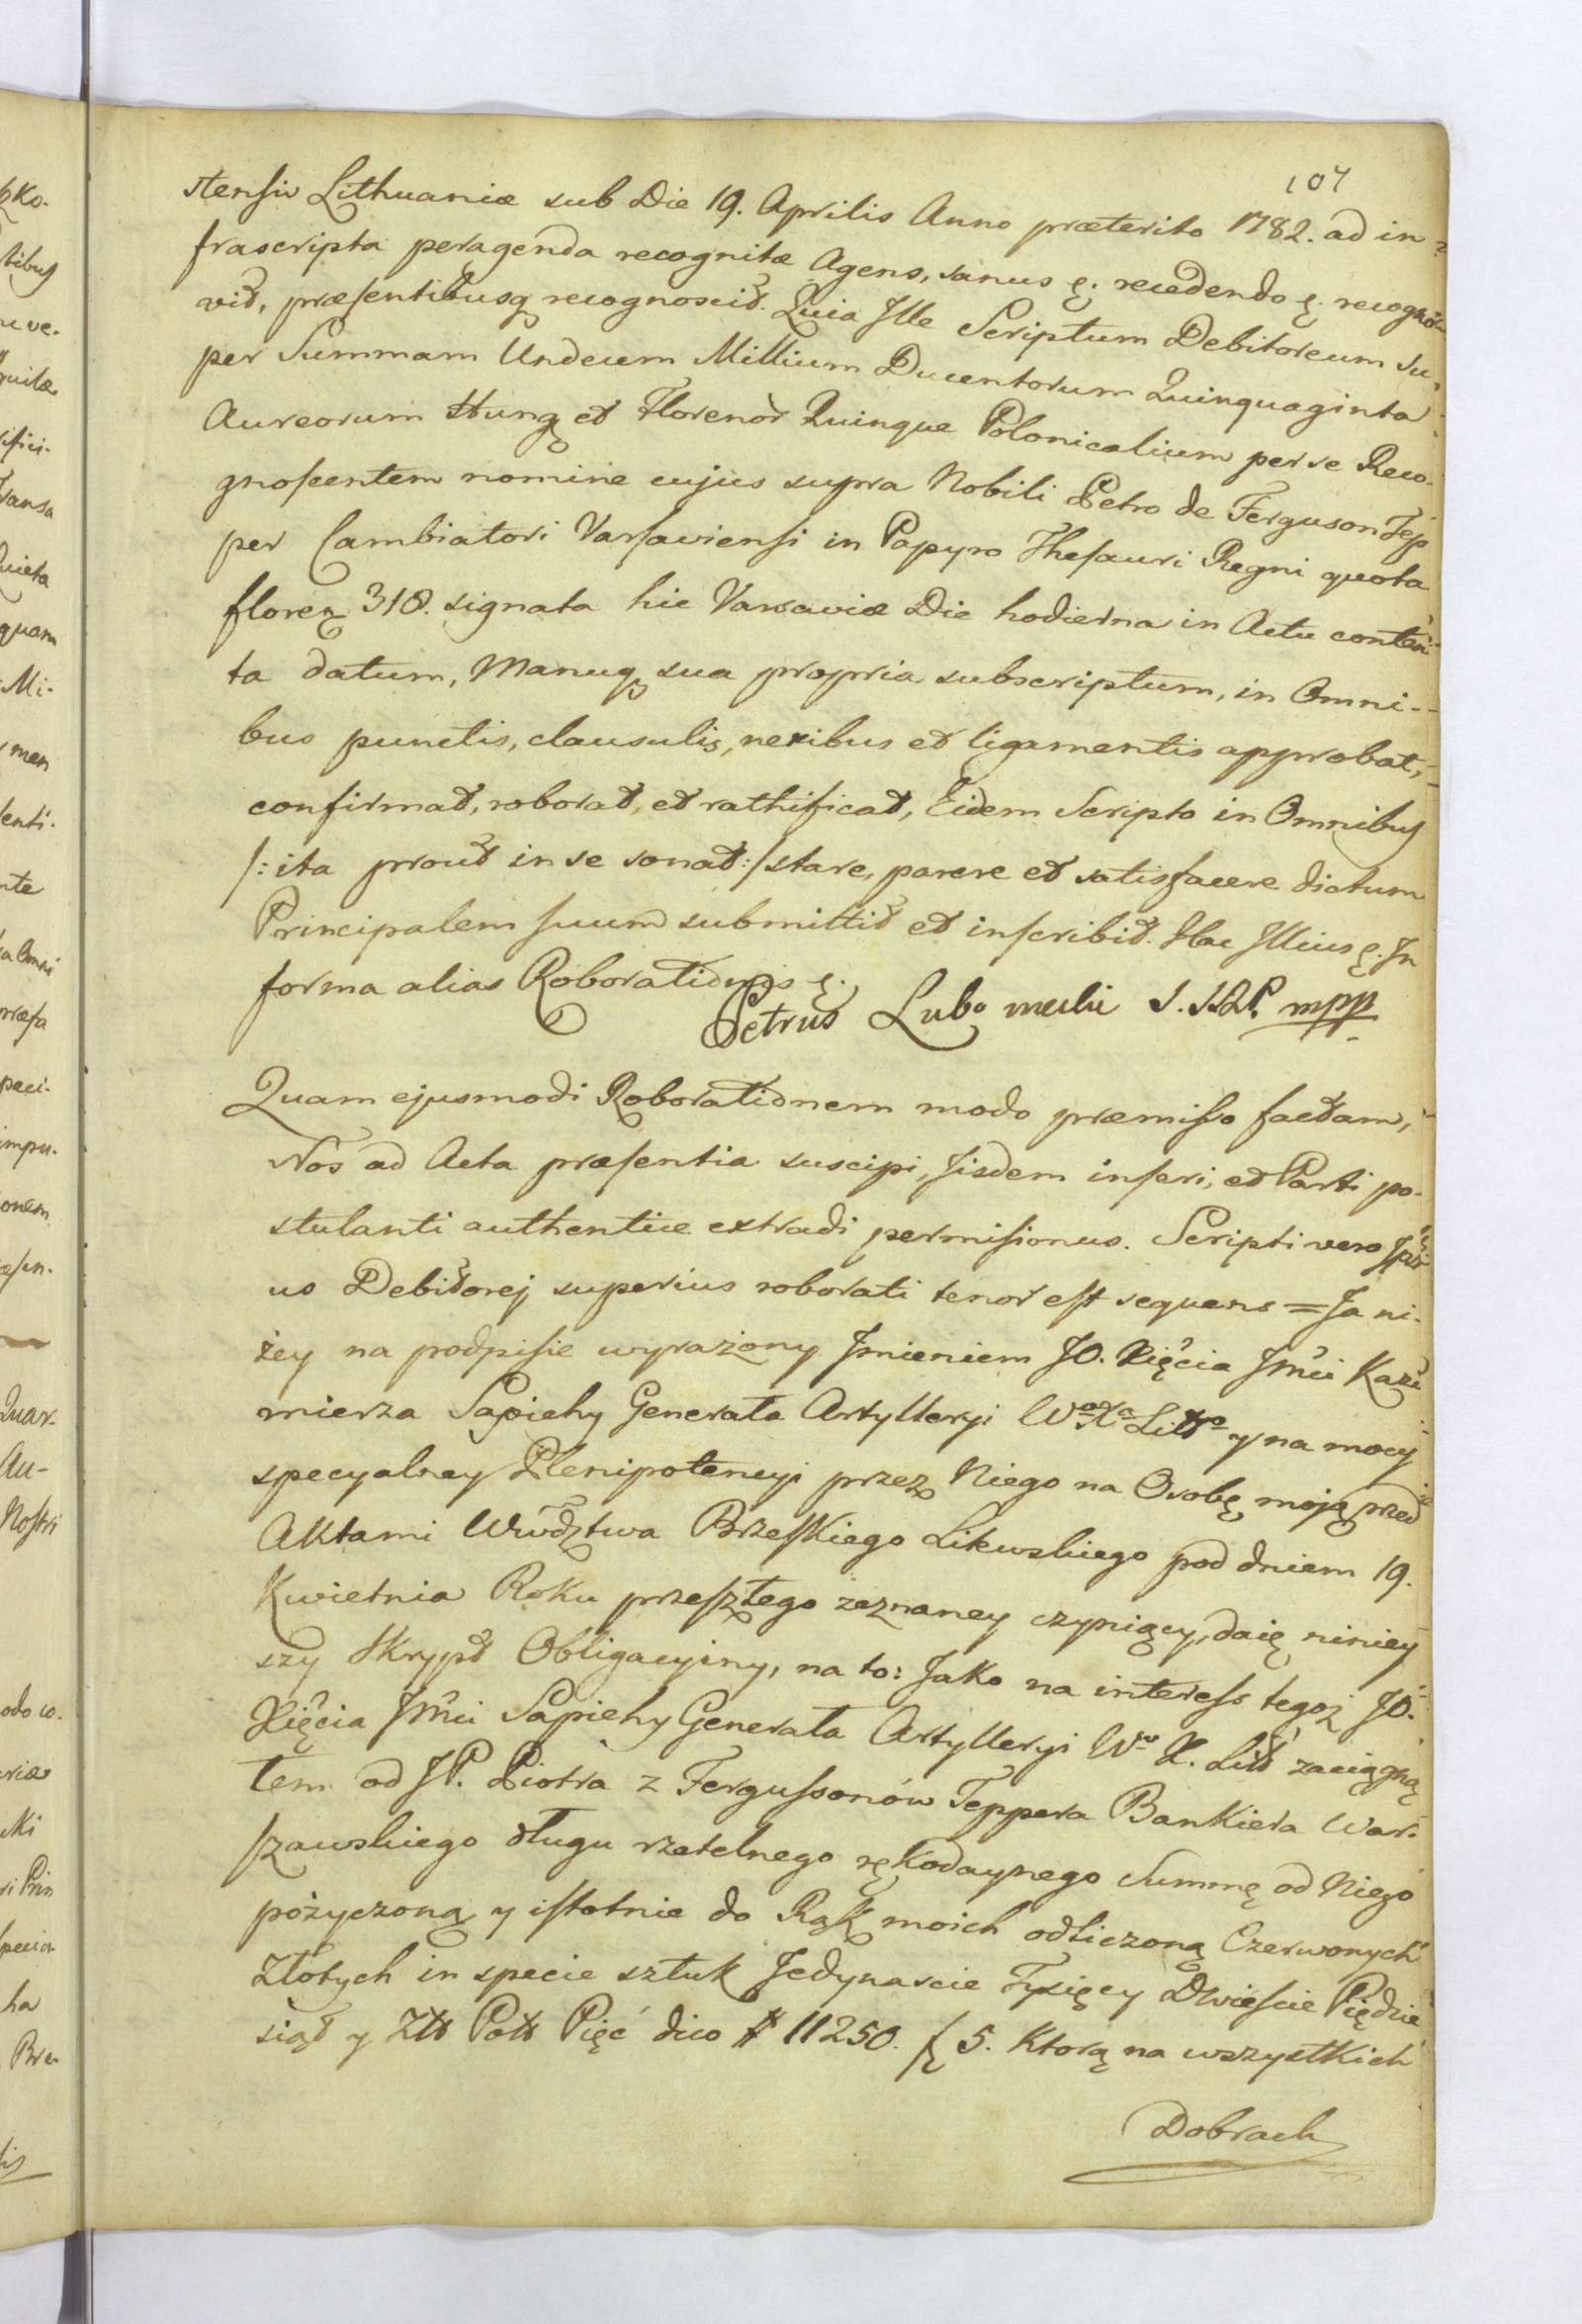 107
stensis Lithuaniæ sub Die 19. Aprilis Anno præterito 1782. ad in-
frascripta peragenda recognitæ Agens, sanus ę. recedendo ę. recogno-
vit, præsentibusq recognoscit. Quia Ille Scriptum Debitoreum su-
per Summam Undecim Millium Ducentorum Quinquaginta
Aureorum Hung et Florenor Quinque Polonicalium per se Reco-
gnoscentem nomine cujus supra Nobili Petro de Ferguson Tep
per Cambiatori Varsaviensi in Papyro Thesauri Regni quota
floren 318. signata hic Varsaviæ Die hodierna in Actu conten-
ta datum, Manuq sua propria subscriptum, in Omni-
bus punctis, clausulis, nexibus et ligamentis approbat,
confirmat, roborat, et rathificat, Eidem Scripto in Omnibus
/: ita prout in se sonat:/ stare, parere et satisfacere dictum
Principalem suum submittit et inscribit. Hac Illius ę. In
forma alias Roborationis ę.
Petrus mpp
Quam ejusmodi Roborationem modo præmisso factam,
Nos ad Acta præsentia suscipi, Iisdem inseri, et Parti po-
stulanti authentice extradi permisimus. Scripti vero
us Debitorej superius roborati tenor est sequens = Ja ni-
żey na podpisie wyrażony Imieniem JO. Xięcia Jmci Kazi
mierza Sapiehy Generała Artylleryi Wo Xa Litto y na mocy
specyalney Plenipotencyi przez Niego na Osobę moją przed
Aktami Wwdztwa Brzeskiego Litewskiego pod dniem 19.
Kwietnia Roku przeszłego zeznaney czyniący, daię niniey
szy Skrypt Obligacyiny, na to: Jako na interess tegoż JO.
Xięcia Jmci Sapiehy Generała Artylleryi Wo X. Litt zaciągną
łem od JP. Piotra z Fergussonów Teppera Bankiera War-
szawskiego długu rzetelnego rękodaynego Summę od Niego
pożyczoną y istotnie do Rąk moich odliczoną Czerwonych
Złotych in specie sztuk Jedynascie Tysięcy Dwieście Pięćdzie
siąt y Złł Poll Pięć dico # 11250. f 5. Ktorą na wszystkich
Dobrach